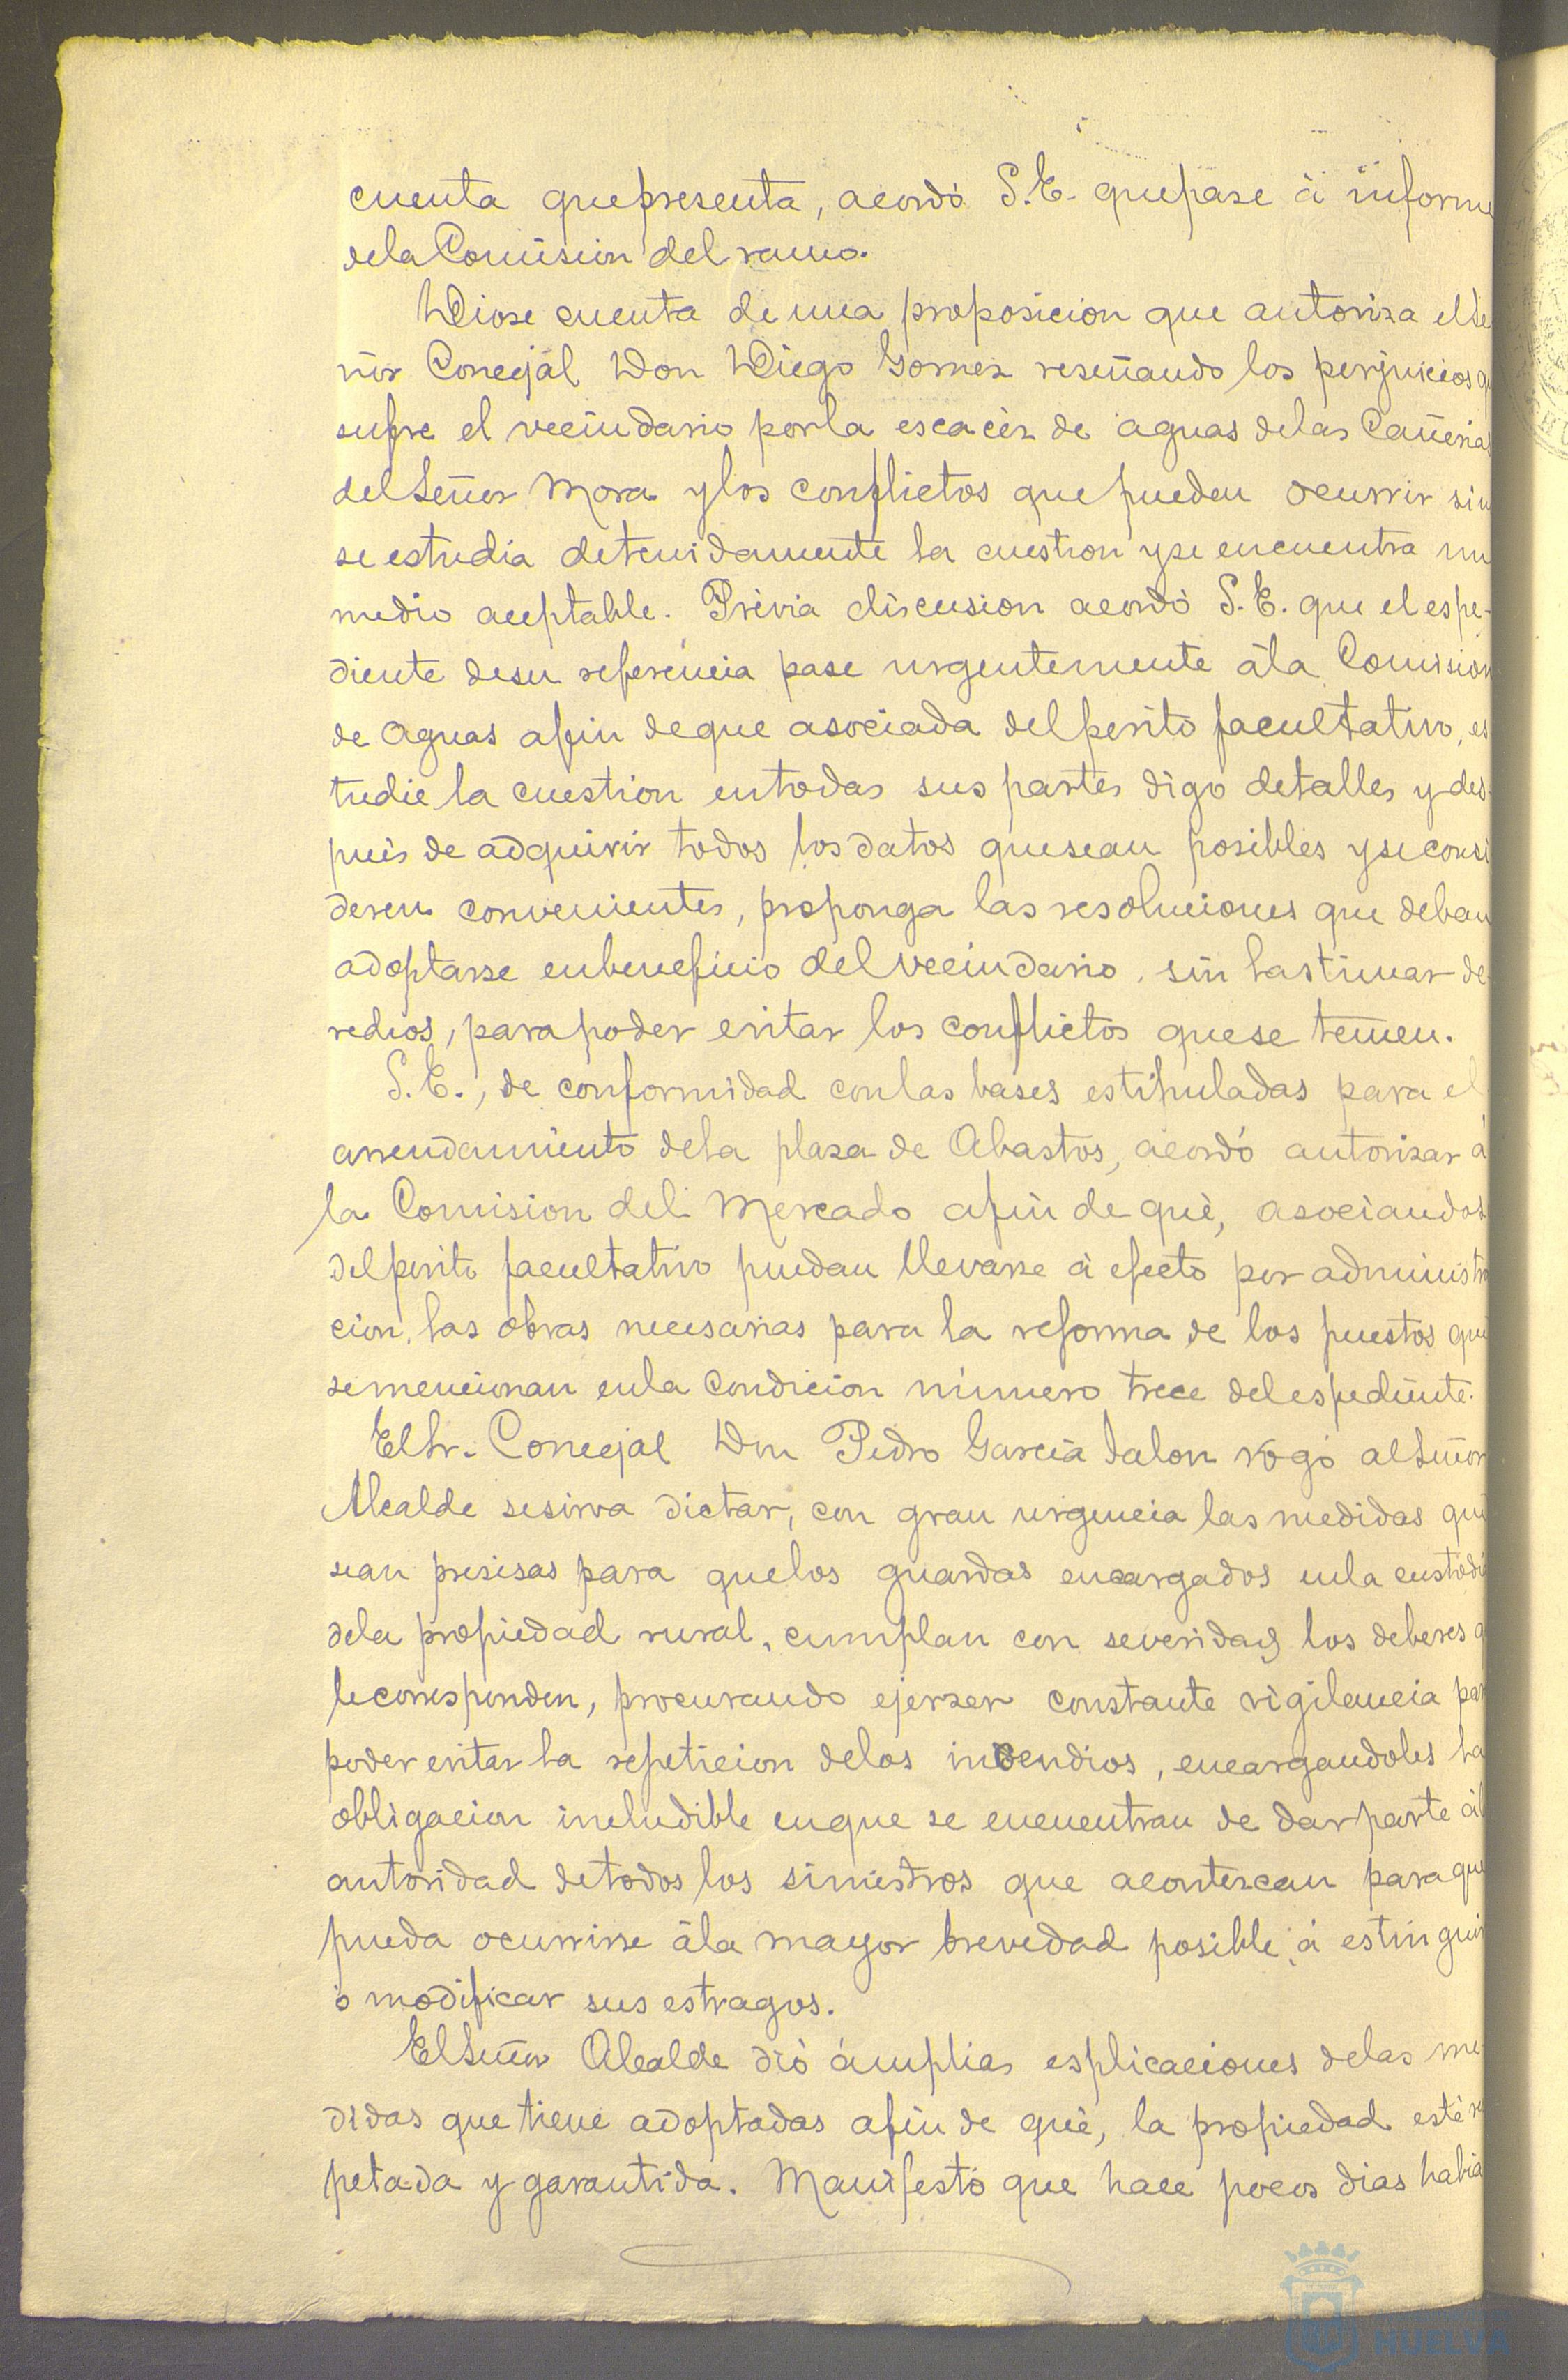 cuenta que presenta, acordó S.E. que pase á informe
de la Comision del ramo.
Diose cuenta de una proposicion que autoriza el Se
ñor Concejal Don Diego Gomez reseñando los perjuicios q
sufre el vecindario por la escacéz de aguas de las Cañerias
del Señor Mora y los conflictos que pueden ocurrir sin
se estudia detenidamente la cuestion y se encuentra un
medio aceptable. Prévia discusion acordó S.E. que el espe-
diente de su referencia pase urgentemente á la Comision
de Aguas afin de que asociada del perito facultativo, es
tudie la cuestion en todas sus partes digo detalles y des-
pués de adquirir todos los datos que sean posibles y se consi
deren convenientes, proponga las resoluciones que deban
adoptarse en beneficio del vecindario, sin lastimar de
rechos, para poder evitar los conflictos que se temen.
S.E., de conformidad con las bases estipuladas para el
arrendamiento de la plaza de Abastos, acordó autorizar á
la Comision del Mercado afin de que, asociandose
del perito facultativo puedan llevarse á efecto por administra
cion, las obras necesarias para la reforma de los puestos que
se mencionan en la condicion número trece del espediente.
El Sr. Concejal Don Pedro Garcia Jalon rogó al Señor
Alcalde se sirva dictar, con gran urgencia las medidas que
sean presisas para que los guardas encargados en la custodia
de la propiedad rural, cumplan con severidad los deberes q
le corresponden, procurando ejerser constante vigilancia par
poder evitar la repeticion de los incendios, encargandoles la
obligacion ineludible en que se encuentran de dar parte á l
autoridad de todos los siniestros que acontezcan para que
pueda ocurrirse á la mayor brevedad posible, á estinguir
ó modificar sus estragos.
El Señor Alcalde dió ámplias esplicaciones de las me
didas que tiene adoptadas afin de que, la propiedad esté res
petada y garantida. Manifestó que hace pocos dias habia
HUELVA